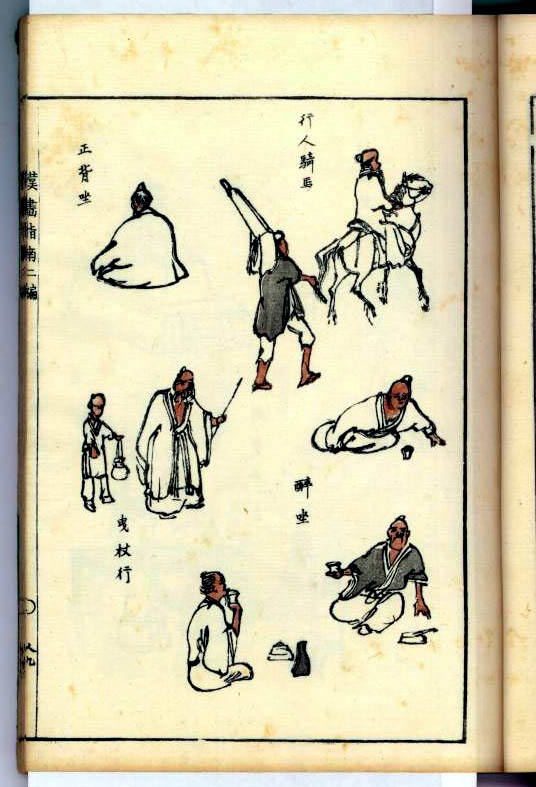 行人騎馬
正背坐
醉坐
曳杖行
漢畵指南二編